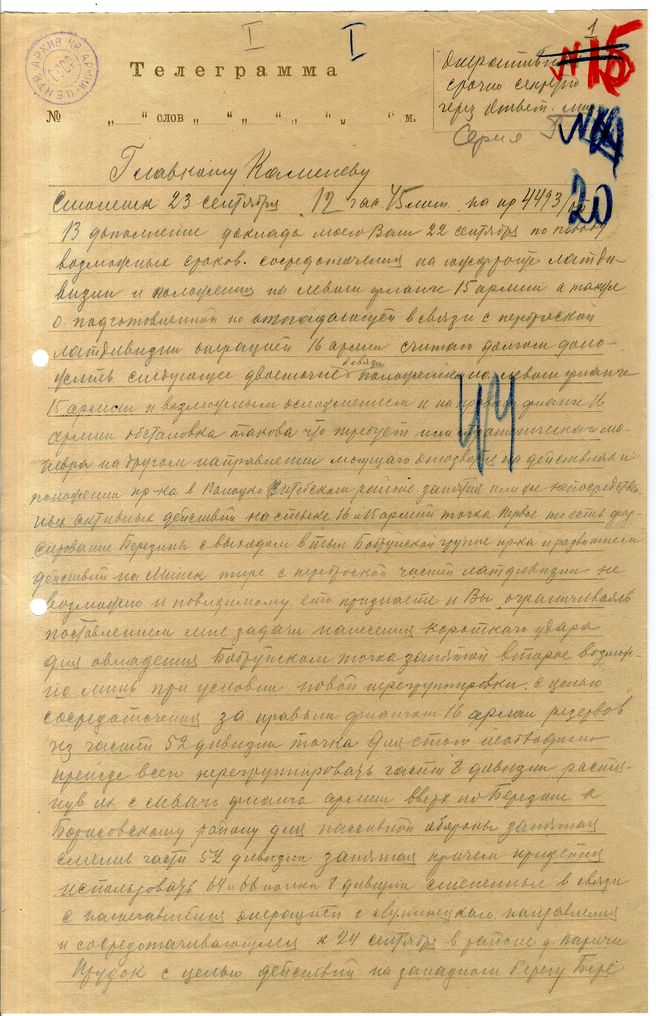 1
I I
Телеграмма
Оперативная
срочно секретно
через ответ.
№ 15
№ „ “ слов „ “ „ “ „ “ „ “ м.
Серия
20
Главкому Каменеву
Смоленск 23 сентября 12 час. 45 мин. на нр 4493/оп
В дополнение доклада моего Вам 22 сентября по поводу
возможных сроков сосредоточения на южфронте латди-
визии и положения на левом фланге 15 армии а также
о подготовленной но отпадающей в связи с переброской
латдивизии операцией 16 армии считаю долгом доло-
в связи
жить следующее двоеточие положением на левом фланге
15 армии и возможным осложнением и на правом фланге 16
армии обстановка такова что требует или ма-
невра на другом направлении могущего отозваться на действиях и
положении пр-ка в Полоцко Витебском районе запятая или же непосредствен
ных активных действий на стыке 16 и 15 армий точка Первое то есть фор-
сирование Березины с выходом в тыл Бобруйской группе пр-ка и развитием
действий на Минск тире с переброской частей латдивизии не
возможно и повидимому это признаете и Вы ограничиваясь
поставлением мне задачи нанесения короткого удара
для овладения Бобруйском точка запятой второе возмож-
но лишь при условии новой перегруппировки с целью
сосредоточения за правым флангом 16 армии резервов
из частей 52 дивизии точка Для этого необходимо
прежде всего перегруппировать части 8 дивизии растя-
нув их с левого фланга армии вверх по Березине к
Борисовскому району для пассивной обороны запятая
сменив части 52 дивизии запятая причем придется
использовать 64 и 66 полки 8 дивизии смененные в связи
с намечавшейся операцией с направления
и сосредотачивающиеся к 24 сентября в районе д. Паричи
Прудок с целью действий на западном берегу Бере